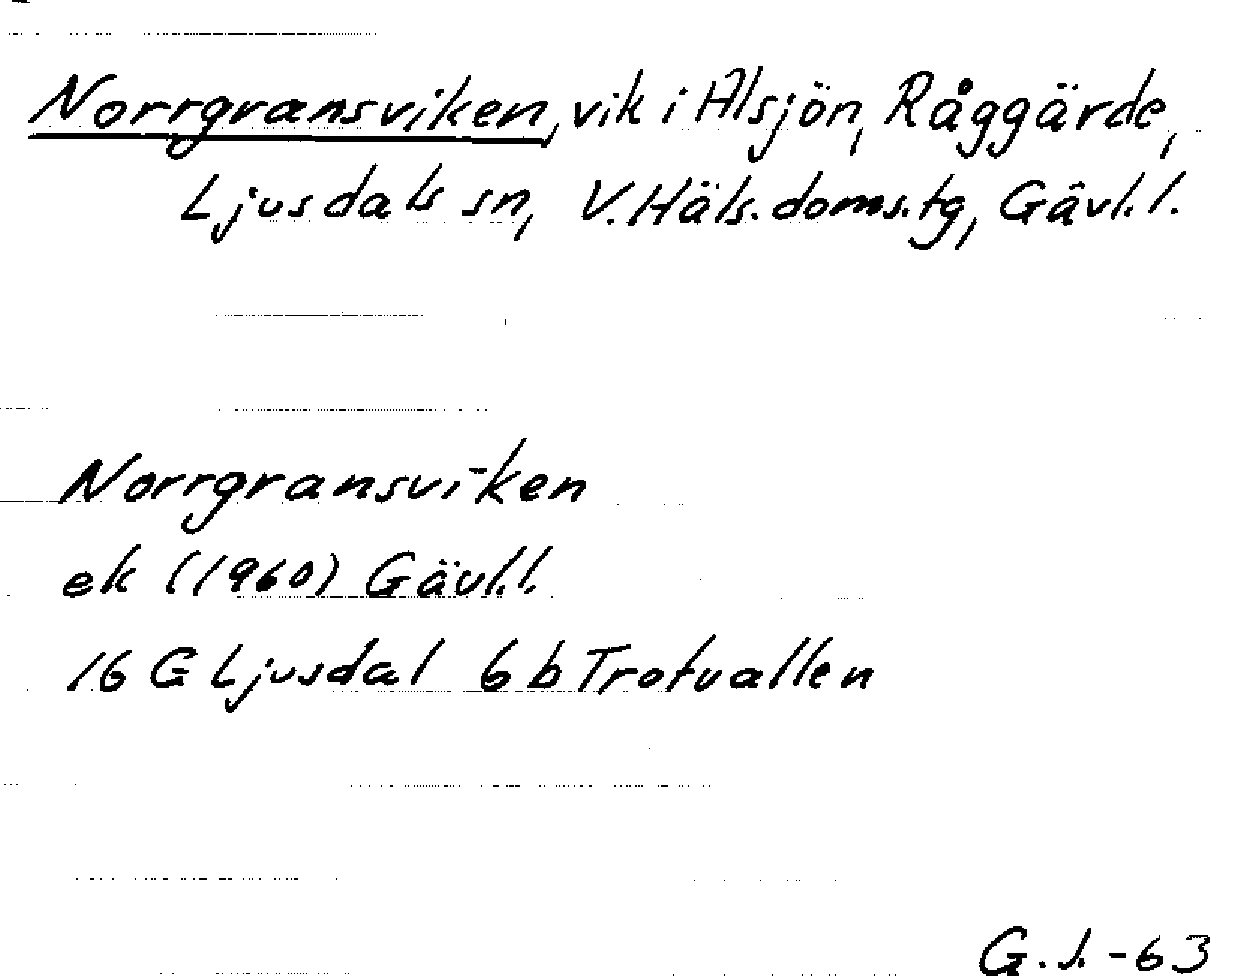 Norrgransviken, vik i Alsjön, Råggärde,
Ljusdals sn, V. Häls. doms.tg, Gävl.l.
Norrgransviken
ek (1960) Gävl.l.
16 G Ljusdal 6 b Trotvallen
G.J.-63